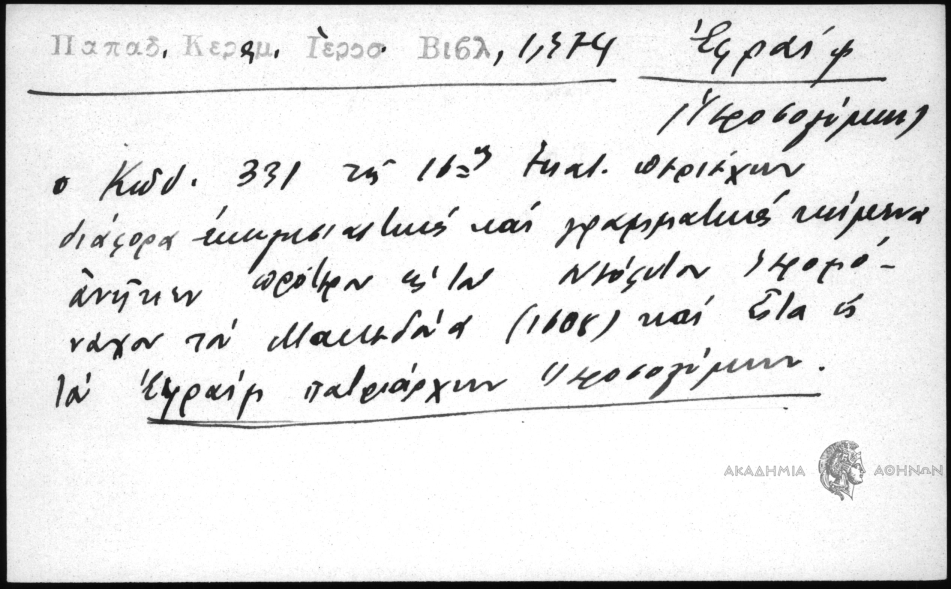 Παπαδ. Κεραμ. Ἱεροσ. Βιβλ, 1,374 Ἐφραίμ
Ἱεροσολύμων
ὁ Κωδ. 331 τῆς 16ης ἑκατ. περιέχων
διάφορα ἐκκλησιαστικὰ καὶ γραμματικὰ κείμενα
ἀνῆκεν πρότερον εἰς τὸν Ἱερομό-
ναχον τὸν Μακεδόνα (1608) καὶ εἶτα εἰς
τὸν Ἐφραὶμ πατριάρχην Ἱεροσολύμων.
ΑΚΑΔΗΜΙΑ ΑΘΗΝΩΝ